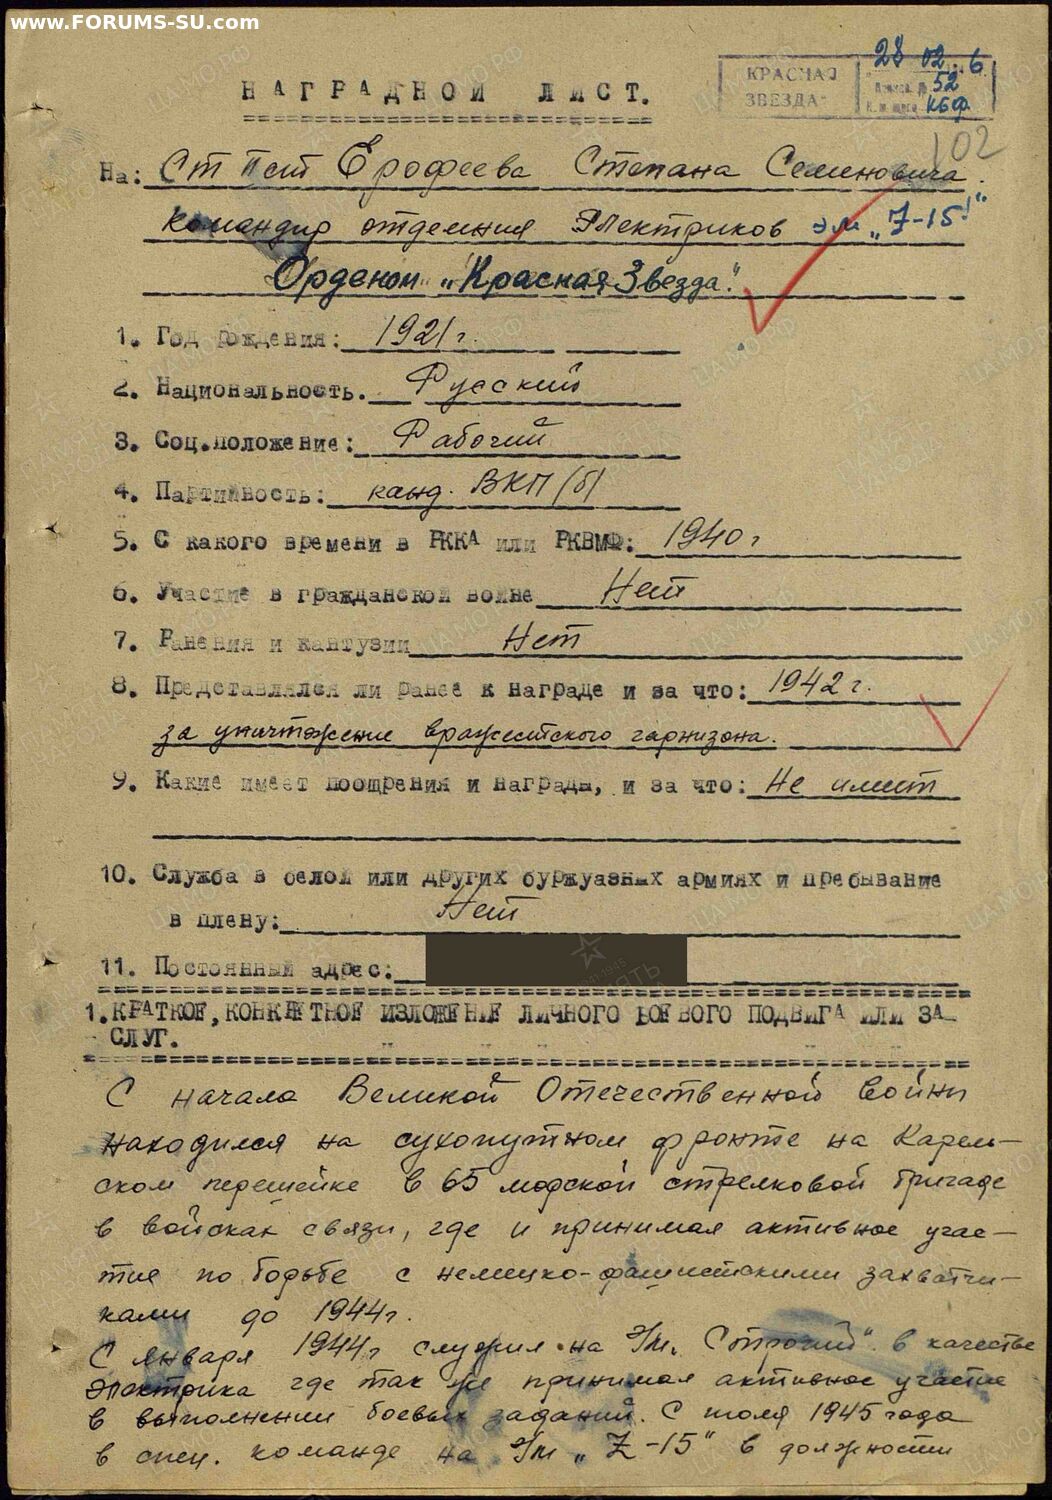 www.FORUMS-SU.com
28 02 6
КРАСНАЯ
ЗВЕЗДА
52
КБФ
НАГРАДНОЙ ЛИСТ.
102
На: Ст Ерофеева Степана Семеновича.
командир отделния Электриков эм „Z-15"
Орденом „Красная Звезда".
1. Год рождения: 1921 г.
2. Национальность. Русский
3. Соц.положение: Рабочий
4. Партийность: канд. ВКП(б)
5. С какого времени в РККА или РКВМФ: 1940 г
6. Участие в гражданской войне Нет
7. Ранения и кантузии Нет
8. Представлялся ли ранее к награде и за что: 1942 г.
за уничтжение вражеитского гарнизона.
9. Какие имеет поощрения и награды, и за что: Не имеет
10. Служба в белой или других буржуазных армиях и пребывание
в плену: Нет
11. Постоянный адрес:
1. КРАТКОЕ, КОНКРЕТНОЕ ИЗЛОЖЕНИЕ ЛИЧНОГО БОЕВОГО ПОДВИГА ИЛИ ЗА-
СЛУГ.
С начала Великой Отечественной войны
находился на сухопутном фронте на Карель-
ском перешейке в 65 морской стрелковой бригаде
в войсках связи, где и принимал активное учас-
тие по борьбе с немецко-фашистскими захватчи-
ками до 1944г.
С января 1944г служил на Эм. „Строгий" в качестве
электрика где так же принимал активное участие
в выполнении боевых заданий. С июля 1945 года
в спец. команде на Эм „Z-15" в должности